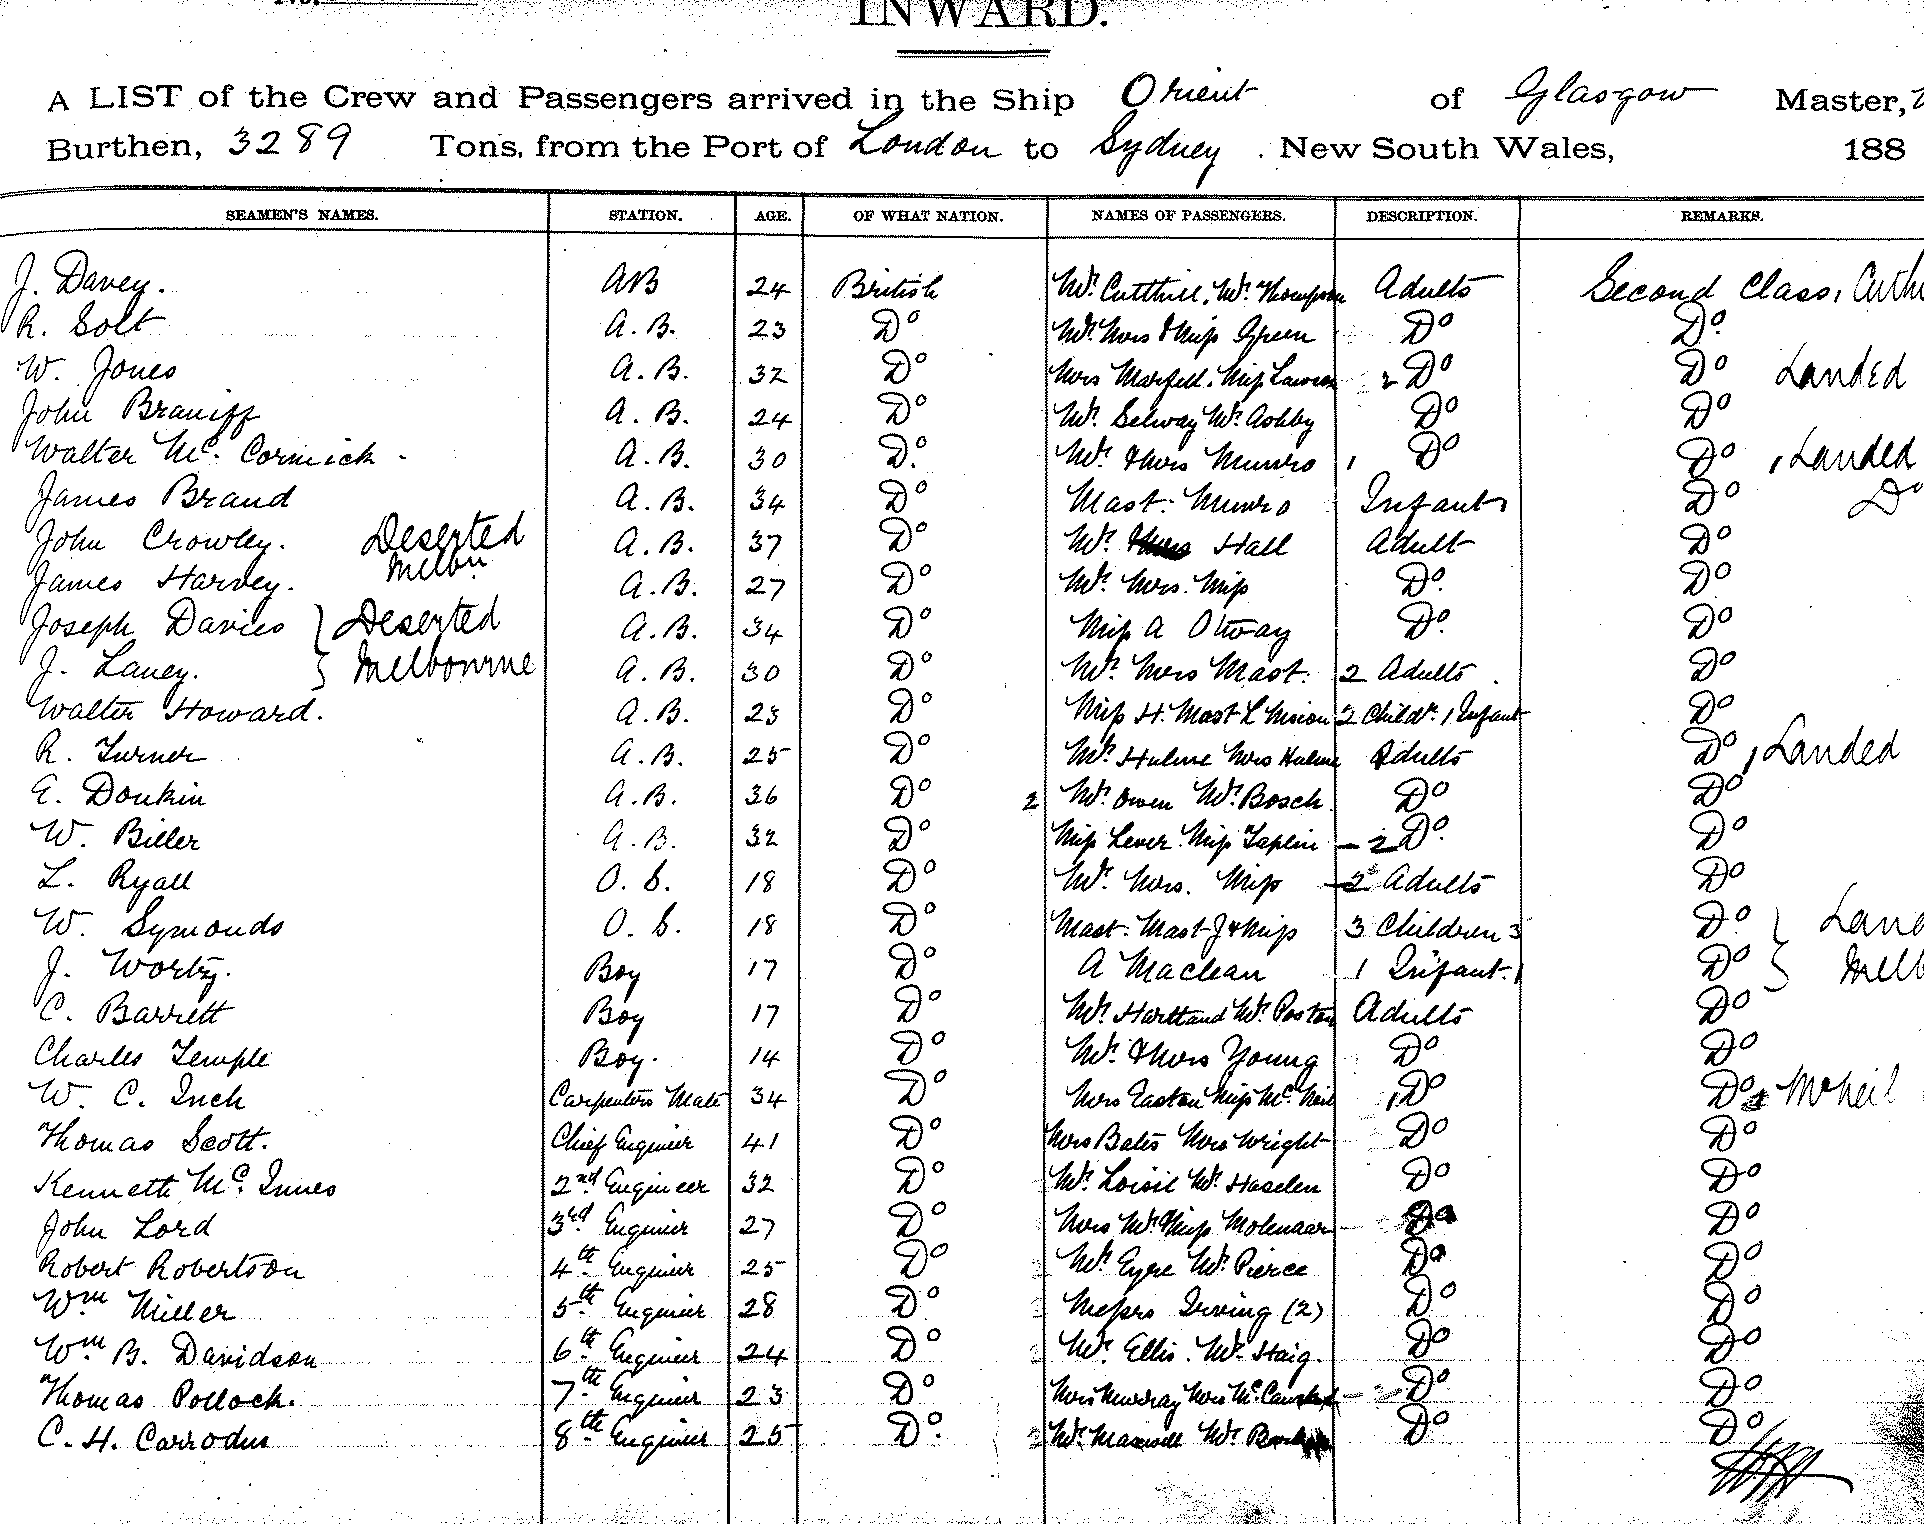 INWARD.
A LIST of the Crew and Passengers arrived in the Ship Orient of Glasgow Master,
Burthen, 3289 Tons, from the Port of London to Sydney. New South Wales, 188
SEAMEN'S NAMES. STATION. AGE. OF WHAT NATION. NAMES OF PASSENGERS. DESCRIPTION. REMARKS.
J. Davey. AB 24 British Mr. Cutthill. Mr. Thompson Adults Second Class,
R. Solt A.B. 23 Do Mr. Mrs & Miss Green Do Do.
W. Jones A.B. 32 Do Mrs Miss Lawson 2 Do Do Landed
John Braniff A.B. 24 Do Mr. Selway Mr. Ashby Do Do
Walter Mc. Cormick A.B. 30 Do. Mr. & Mrs Munro 1 Do Do 1 Landed
James Brand A.B. 34 Do Mast. Munro Infant 1 Do Do
John Crowley. Deserted Melbn A.B. 37 Do Mr. Hall Adult Do
James Harvey. A.B. 27 Do Mr. Mrs. Miss Do. Do
Joseph Davies } Deserted A.B. 34 Do Miss A Otway Do. Do
J. Laney. } Melbourne A.B. 30 Do Mr. Mrs Mast. 2 Adults Do
Walter Howard. A.B. 23 Do Miss H. Mast L 2 Childn. 1 Infant Do
R. Turner A.B. 25 Do Mr. Hulme Mrs Hulme Adults Do 1 Landed
E. Donkin A.B. 36 Do 2 Mr. Owen Mr. Bosch Do Do
W. Biller A.B. 32 Do Miss Lever. Miss Taplin - 2 Do. Do
L. Ryall O.S. 18 Do Mr. Mrs. Miss 2 Adults Do
W. Symonds O.S. 18 Do Mast. Mast J & Miss 3 Children 3 Do }
J. Worty. Boy 17 Do A Maclean 1 Infant. 1 Do }
C. Barrett Boy 17 Do Mr. Hartland Mr. Poston Adults Do
Charles Temple Boy. 14 Do Mr. & Mrs Young Do Do
W. C. Inch Carpenters Mate 34 Do Mrs Easton Miss Mc. Neil 1 Do Do McNeil
Thomas Scott. Chief Engineer 41 Do Mrs Bates Mrs Wright Do Do
Kenneth Mc. Innes 2nd Engineer 32 Do Mr. Loisil Mr. Haselen Do Do
John Lord 3rd Engineer 27 Do Mrs Mr. & Miss Molenaar Do Do
Robert Robertson 4th Engineer 25 Do Mr. Eyre Mr. Pierce Do Do
Wm Miller 5th Engineer 28 Do Messrs Irving (2) Do Do
Wm. B. Davidson 6th Engineer 24 Do Mr. Ellis. Mr. Haig. Do Do
Thomas Pollock. 7th Engineer 23 Do Mrs Murray Mrs Do Do
C. H. Carrodus 8th Engineer 25 Do. Mr. Maxwell Mr. Do Do